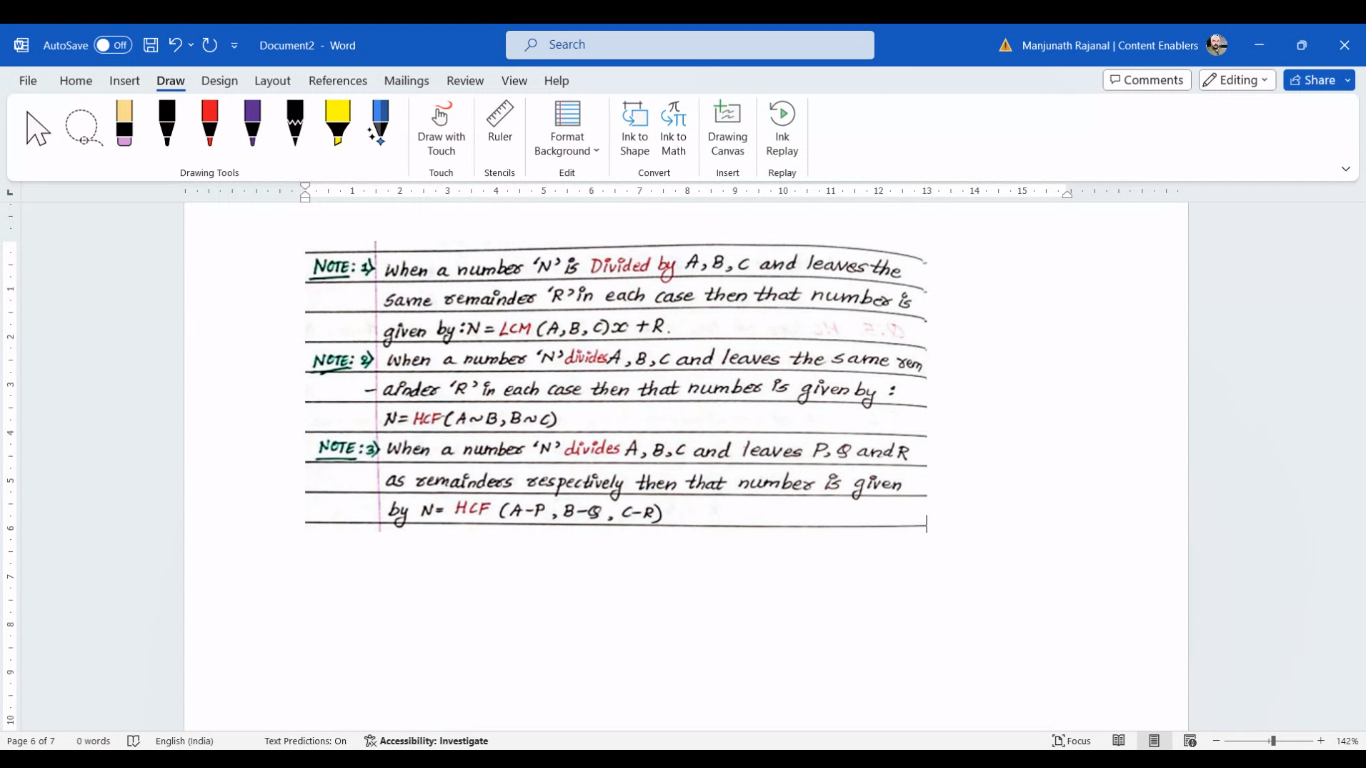 AutoSave Off Document2 - Word Search Manjunath Rajanal | Content Enablers
File Home Insert Draw Design Layout References Mailings Review View Help Comments Editing Share
Draw with Touch Ruler Format Background Ink to Shape Ink to Math Drawing Canvas Ink Replay
Drawing Tools Touch Stencils Edit Convert Insert Replay
1 2 3 4 5 6 7 8 9 10 11 12 13 14 15
NOTE: 1) When a number 'N' is Divided by A, B, C and leaves the
same remainder 'R' in each case then that number is
given by: N = LCM (A, B, C)x + R.
NOTE: 2) When a number 'N' divides A, B, C and leaves the same rem
- ainder 'R' in each case then that number is given by :
N= HCF (A~B, B~C)
NOTE: 3) When a number 'N' divides A, B, C and leaves P, Q and R
as remainders respectively then that number is given
by N= HCF (A-P, B-Q, C-R)
1
2
3
4
5
6
7
8
9
10
Page 6 of 7 0 words English (India) Text Predictions: On Accessibility: Investigate Focus 142%